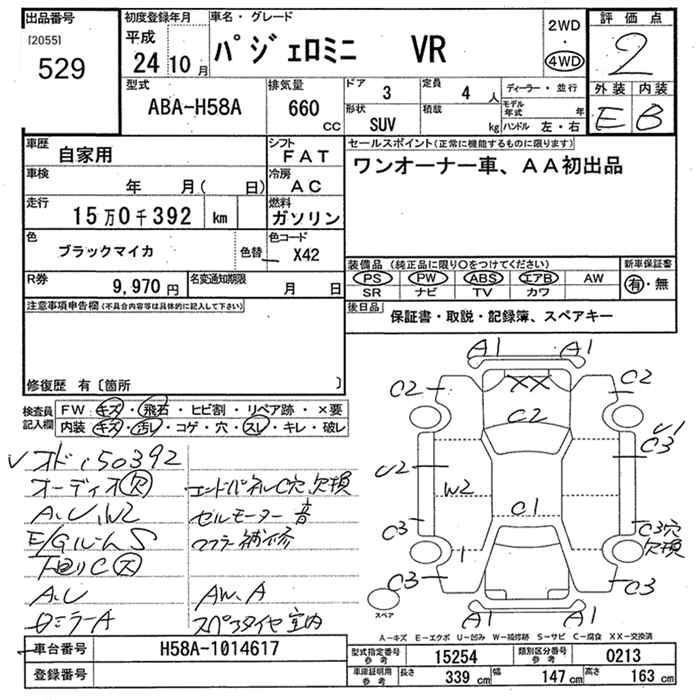 出品番号
[2055]
529
初度登録年月
平成
24 10 月
車名・グレード
パジェロミニ VR
2WD
・
4WD
評価点
2
外装 内装
E B
型式
ABA-H58A
排気量
660
cc
ドア 3
定員 4 人
形状 SUV
積載 kg
ディーラー・並行
モデル年式 年
ハンドル 左・右
車歴
自家用
シフト
FAT
車検
年 月( 日)
冷房
AC
走行
15万0千392 km
燃料
ガソリン
色
ブラックマイカ
色替
色コード
X42
R券
9,970 円
名変通知期限
月 日
セールスポイント(正常に機能するものに限ります)
ワンオーナー車、AA初出品
装備品(純正品に限り○をつけてください)
PS PW ABS エアB AW
SR ナビ TV カワ
新車保証書
有・無
後日品
保証書・取説・記録簿、スペアキー
注意事項申告欄(不具合内容等は具体的に記入して下さい)
修復歴 有〔箇所 〕
検査員記入欄
FW キズ・飛石・ヒビ割・リペア跡・×要
内装 キズ・汚レ・コゲ・穴・スレ・キレ・破レ
オド150392
オーディオ欠
A.U.W2
E/Gルーム S
下回りC
A.U
ミラーA
エンドパネルC穴 欠損
セルモーター音
マフラー補修
AW.A
スペアタイヤ室内
A1 A1
C2 C2
XX
C2
U1
C3
U2
W2
C1
C3
C3穴
欠損
1
C3 C3
A1 A1
スペア
A-キズ E-エクボ U-凹み W-補修跡 S-サビ C-腐食 XX-交換済
車台番号
H58A-1014617
登録番号
型式指定番号
参考
15254
類別区分番号
参考
0213
車庫証明用
参考
長さ 339 cm
幅 147 cm
高さ 163 cm